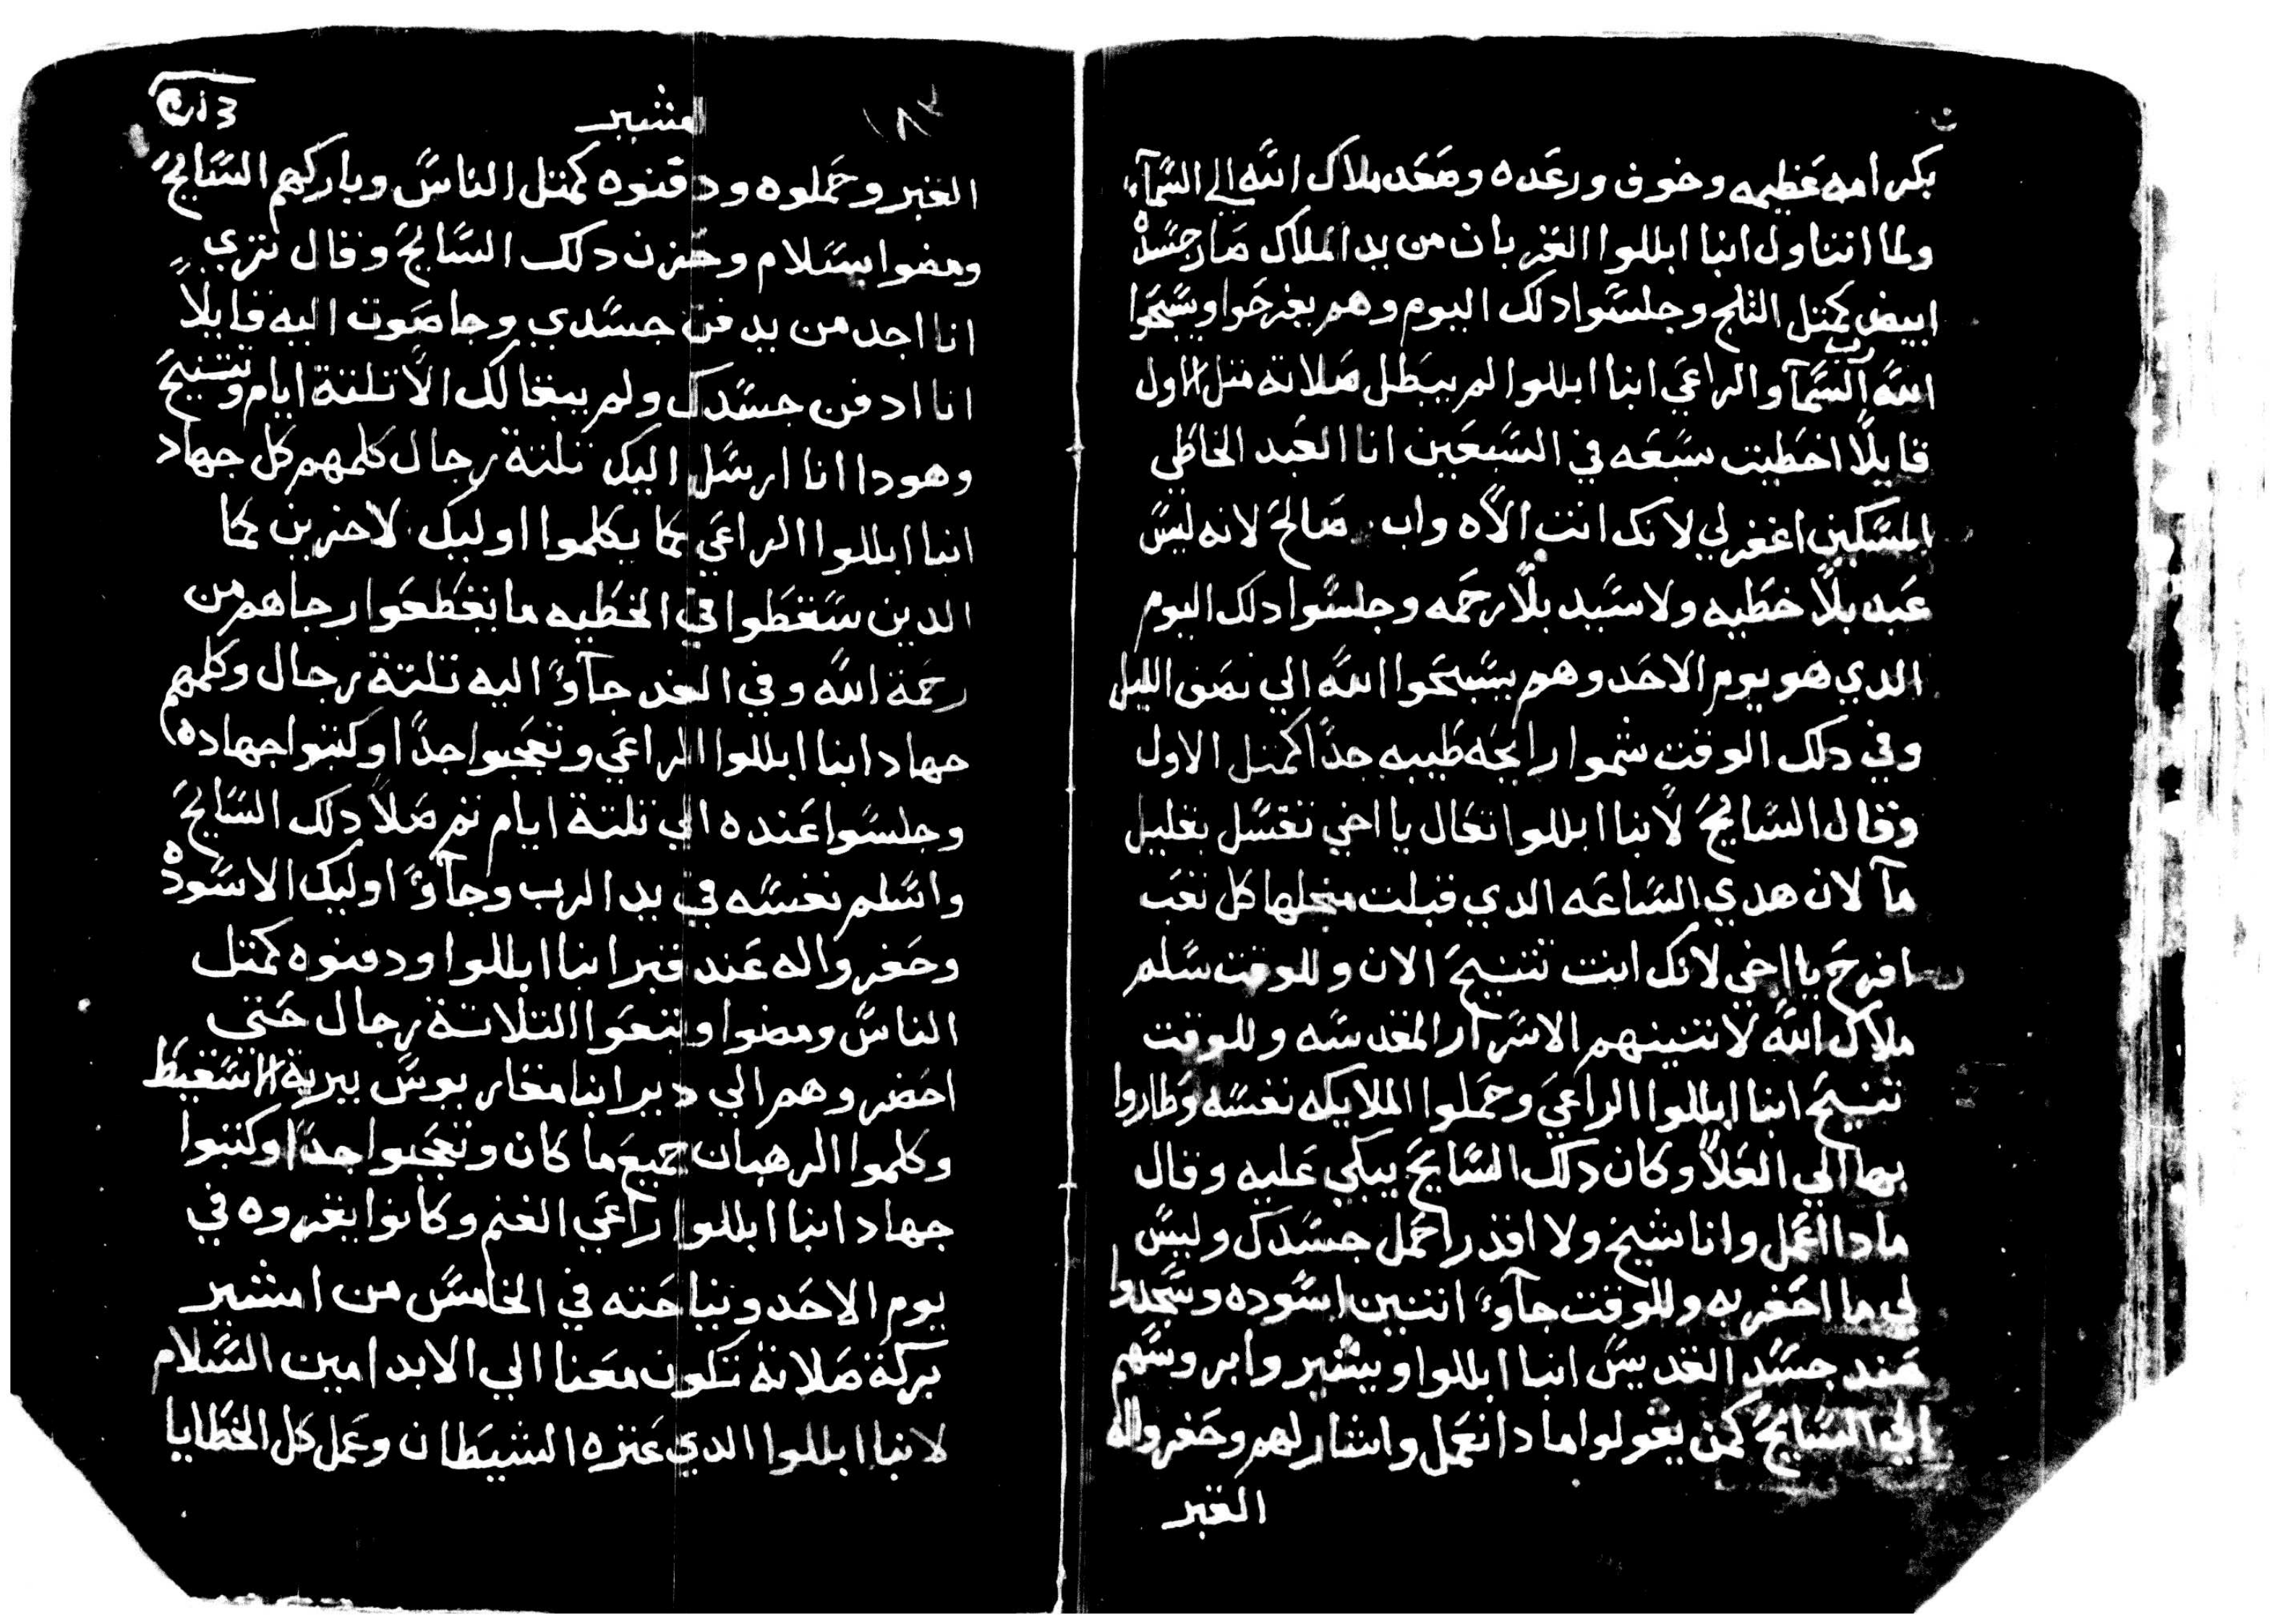 بكرامه عظيمه وخوف ورعده وصعد ملاك الله الي السمآء
ولما انتناول انبا ابللوا القربان من يد الملاك صار جسده
ابيض كمتل الثلج وجلسوا دلك اليوم وهم يفرحوا ويسبحوا
الله رب السمآ والراعي انبا ابللوا لم يبطل صلاته متل الاول
قايلًا اخطيت سبعه في السبعين انا العبد الخاطي
المسكين اغفر لي لانك انت الاه واب صالح لانه ليس
عبد بلا خطيه ولا سيد بلا رحمه وجلسوا دلك اليوم
الدي هو يوم الاحد وهم يسبحوا الله الي نصف الليل
وفي دلك الوقت شموا رايحه طيبه جدًا كمتل الاول
وقال السايح لانبا ابللوا تعال يا اخي تغسل بقليل
مآ لان هدي الساعه الدي قبلت منجلها كل تعب
افرح يا اخي لانك انت تتنيح الان وللوقت سلم
ملاك الله لاتنينهم الاسرار المقدسه وللوقت
تنيح انبا ابللوا الراعي وحملوا الملايكه نفسه وطاروا
بها الي العلا وكان دلك السايح يبكي عليه وقال
مادا اعمل وانا شيخ ولا اقدر احمل جسدك وليس
لي ما احفر به وللوقت جآوء اتنين اسوده وسجدوا
عند جسد القديس انبا ابللوا ويشير وابروسهم
الي السايح كمن يقولوا مادا نعمل واشار لهم وحفروا له
القبر
امشير
القبر وحملوه ودفنوه كمتل الناس وباركهم السايح
ومضوا بسلام وحزن دلك السايح وقال تري
انا اجد من يدفن جسدي وجا صوت اليه قايلًا
انا ادفن جسدك ولم يبقا لك الا تلتة ايام وتتنيح
وهودا انا ارسل اليك تلتة رجال كلمهم كل جهاد
انبا ابللوا الراعي كما يكلموا اوليك لاخرين كما
الدين سقطوا في الخطيه ما يقطعوا رجاهم من
رحمة الله وفي الغد جآوء اليه تلتة رجال وكلمهم
جهاد انبا ابللوا الراعي وتعجبوا جدًا وكتبوا جهاده
وجلسوا عنده الي تلتة ايام تم صلا دلك السايح
واسلم نفسه في يد الرب وجآوء اوليك الاسوده
وحفروا له عند قبر انبا ابللوا ودفنوه كمتل
الناس ومضوا وتبعوا التلاتة رجال حتي
احضروهم الي دير انبا مقار يوس ببرية الاسقيط
وكلموا الرهبان جميع ما كان وتعجبوا جدًا وكتبوا
جهاد انبا ابللوا راعي الغنم وكانوا يقروه في
يوم الاحد ونياحته في الخامس من امشير
بركة صلاته تكون معنا الي الابد امين السلام
لانبا ابللوا الدي عنزه الشيطان وعمل كل الخطايا